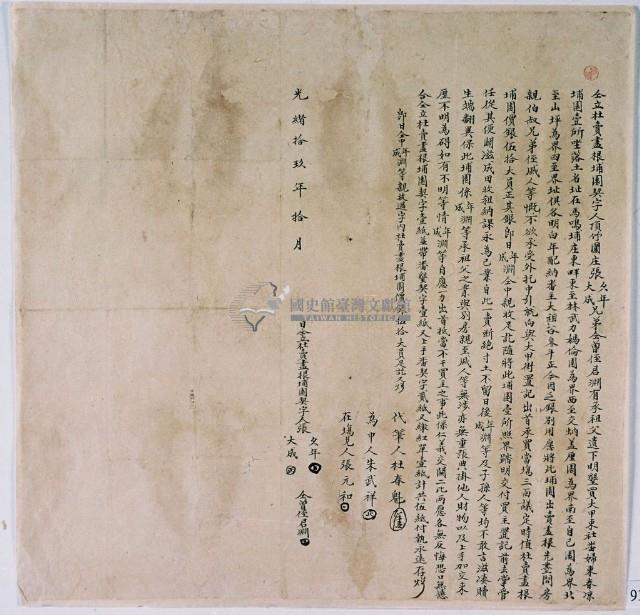 仝立杜賣盡根埔園契字人頂竹圍庄張欠年大成兄弟仝曾侄君淵有承祖父遺下明墾買大甲東社番婦東春凉
埔園壹所坐落土名址在馬鳴埔庄東畔東至林天乃媽倫園為界西至交納義厘園為界南至自己園為界北
至山坪為界四至界址俱各明白年配納番主大租谷
親伯叔兄弟侄戚人等慨不欲承受外托中引就向與大甲街置記出首承買當塲三面議定時值杜賣盡根
埔園價銀伍拾大員正其銀即日年成淵仝中親收足訖隨將此埔園壹所照界踏明交付買主置記前去掌管
任從其便開滋成田收租納課永為己業自此一賣斷絕寸土不留日後年成淵等及子孫人等均不敢言滋凑贖
生端翻異保此埔園係年成淵等承祖父之業與別房親至戚人等無涉亦無重張典掛他人財物以及上手加交來
歷不明為碍如有不明等情年成淵等自應一力出首抵當不干買主之事此係仁義交關二比兩愿各無反悔恐口無憑
合仝立杜賣盡根埔園契字壹紙並帶番墾契字壹紙又上手番契字貳紙又繳紅單壹紙計共伍紙付執永遠存炤
即日仝中年成淵等親收過字內杜賣盡根埔園價銀伍拾大員足訖又炤
代筆人杜春魁
為中人朱武祥
在塲見人張元和
光緒拾玖年拾月
日仝立杜賣盡根埔園契字人張欠年大成
仝曾侄君淵
國史館臺灣文獻館
TAIWAN HISTORICA
9